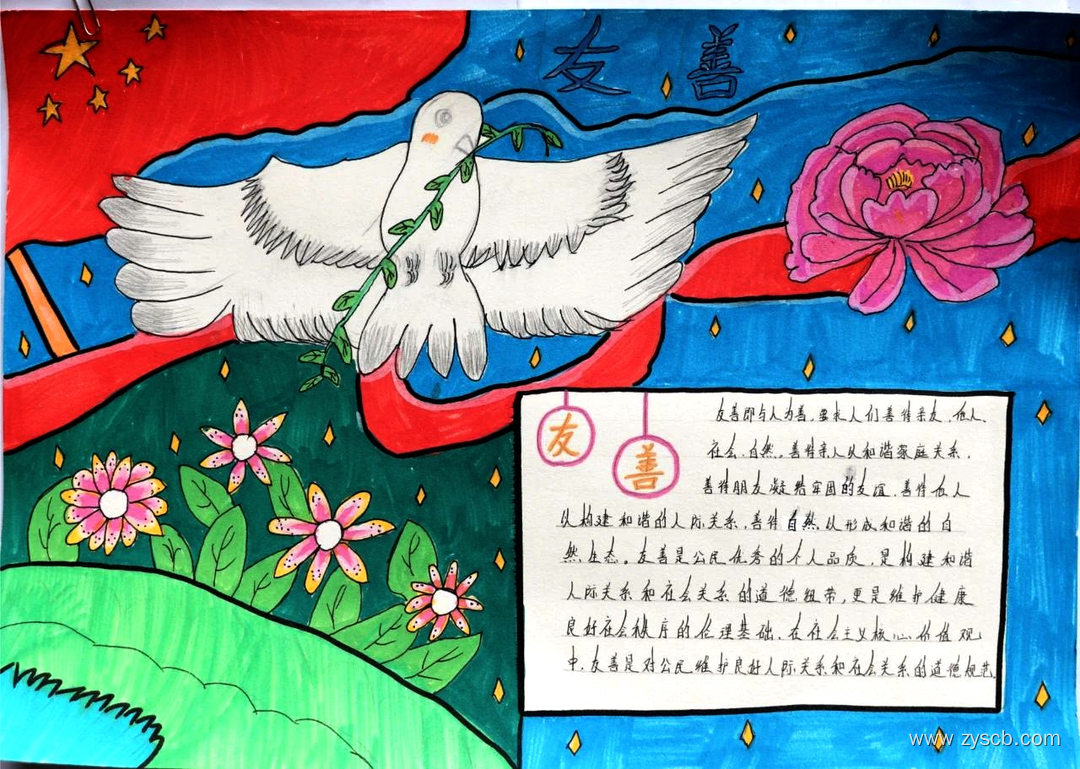 友善
友善
友善即与人为善,要求人们善待亲友、他人、
社会、自然。善待亲人以和谐家庭关系,
善待朋友凝结牢固的友谊,善待他人
以构建和谐的人际关系,善待自然以形成和谐的自
然生态。友善是公民优秀的个人品质,是构建和谐
人际关系和社会关系的道德纽带,更是维护健康
良好社会秩序的伦理基础,在社会主义核心价值观
中,友善是对公民维护良好人际关系和社会关系的道德规范
www.zyscb.com